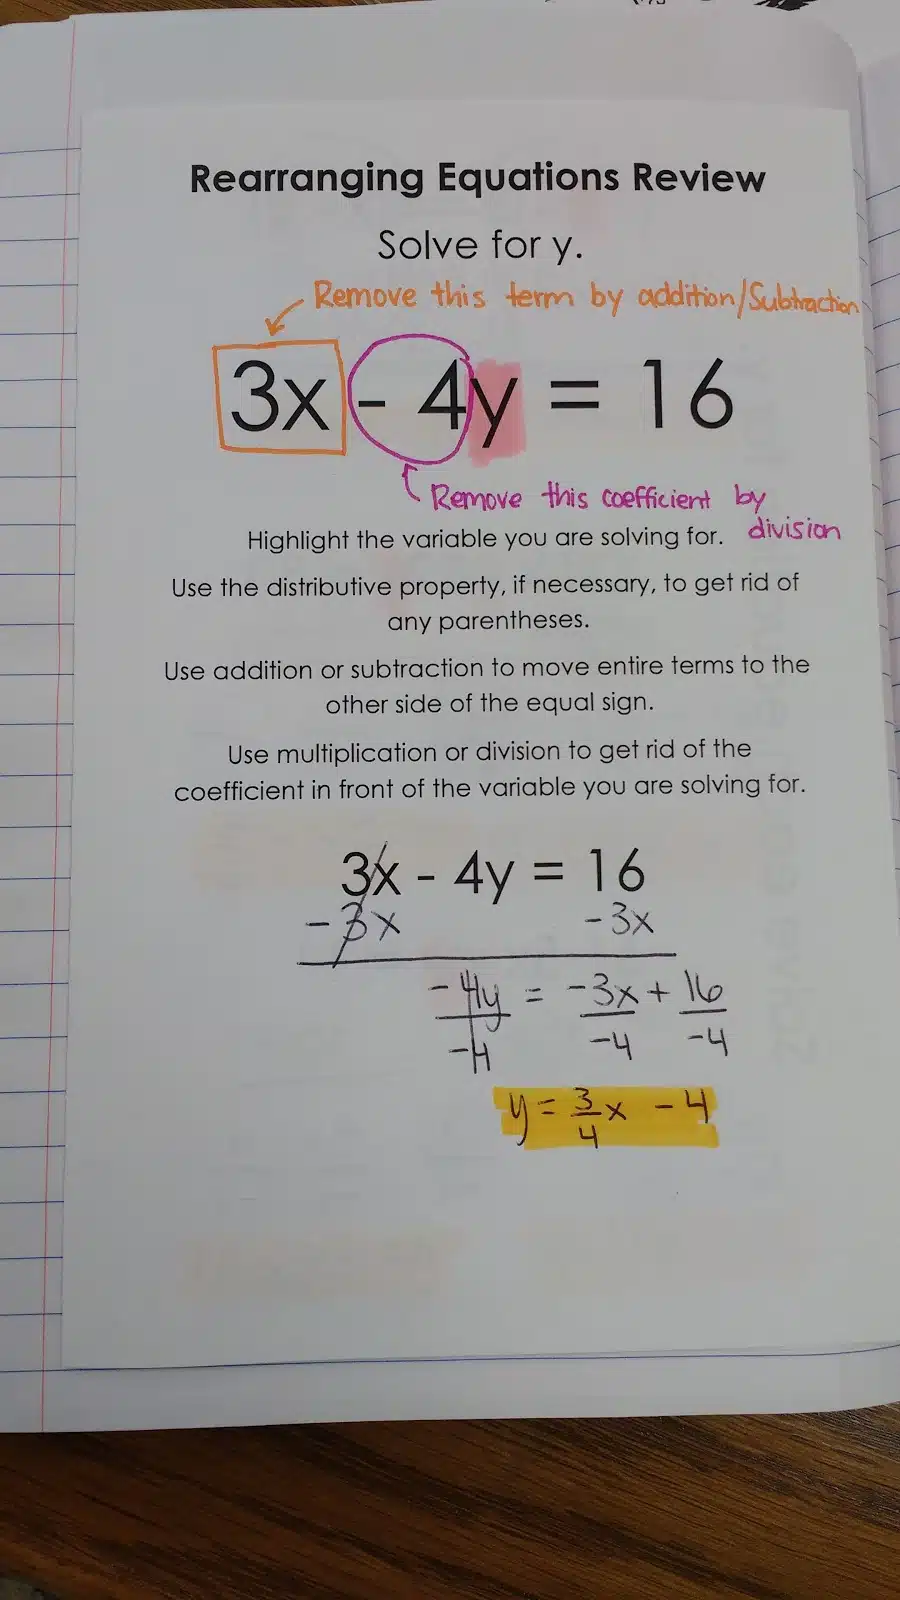 Rearranging Equations Review
Solve for y.
Remove this term by addition/Subtraction
3x - 4y = 16
Remove this coefficient by
division
Highlight the variable you are solving for.
Use the distributive property, if necessary, to get rid of
any parentheses.
Use addition or subtraction to move entire terms to the
other side of the equal sign.
Use multiplication or division to get rid of the
coefficient in front of the variable you are solving for.
3x - 4y = 16
-3x -3x
-4y = -3x + 16
-4 -4 -4
y = 3/4 x - 4